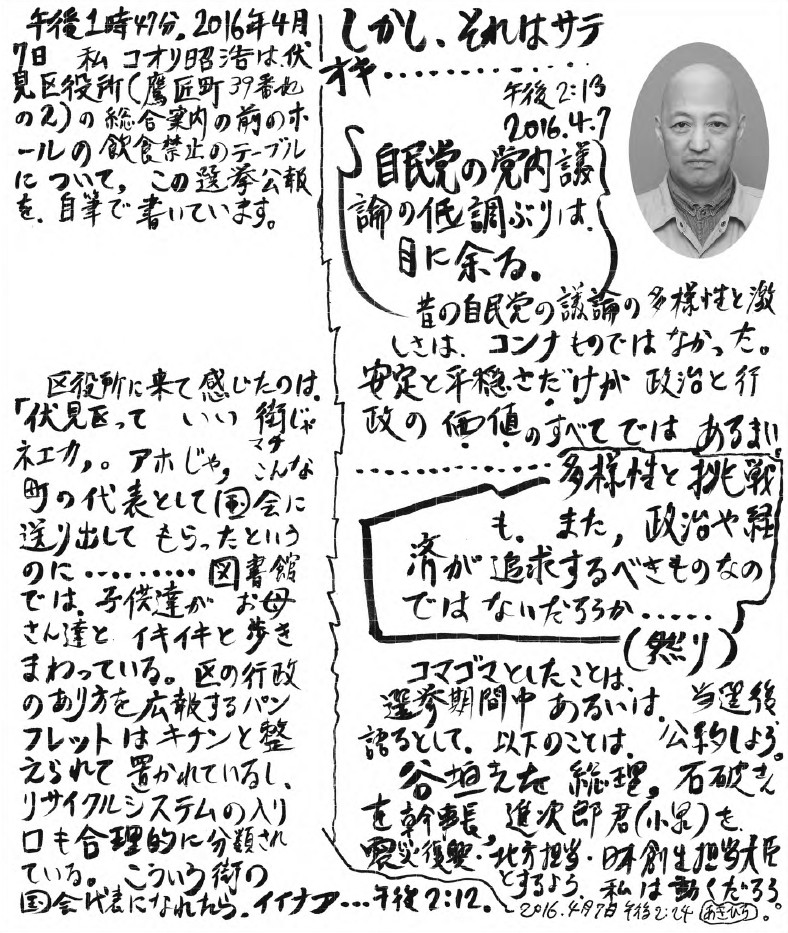 午後1時47分。2016年4月
7日 私 コオリ昭浩は、伏
見区役所(鷹匠町39番地
の2)の総合案内の前のホ
ールの飲食禁止のテーブル
について、この選挙公報
を、自筆で書いています。
区役所に来て感じたのは、
「伏見区って いい 街じゃ
マチ
ネエカ」。アホじゃ、こんな
町の代表として国会に
送り出してもらったという
のに‥‥‥‥ 図書館
では、子供達が お母
さん達と イキイキと歩き
まわっている。区の行政
のあり方を広報するパン
フレットはキチンと整
えられて置かれているし、
リサイクルシステムの入り
口も合理的に分類され
ている。こういう街の
国会代表になれたら、イイナア…午後2:12。
しかし、それはサテ
オキ‥‥‥‥‥‥‥‥
午後2:13
2016.4.7
自民党の党内議
論の低調ぶりは、
目に余る。
昔の自民党の議論の多様性と激
しさは、コンナものではなかった。
安定と平穏さだけが 政治と行
政の価値のすべてではあるまい。
‥‥‥‥‥‥多様性と挑戦
も。また、政治や経
済が追求するべきものなの
ではないだろうか‥‥‥
(然り)
コマゴマとしたことは、
選挙期間中あるいは、当選後
語るとして。以下のことは、公約しよう。
谷垣さんを総理、石破さん
を幹事長、進次郎君(小泉)を、
震災復興・地方担当・日本創生担当大臣
とするよう、私は動くだろう。
2016.4月7日午後2:24 あきひろ